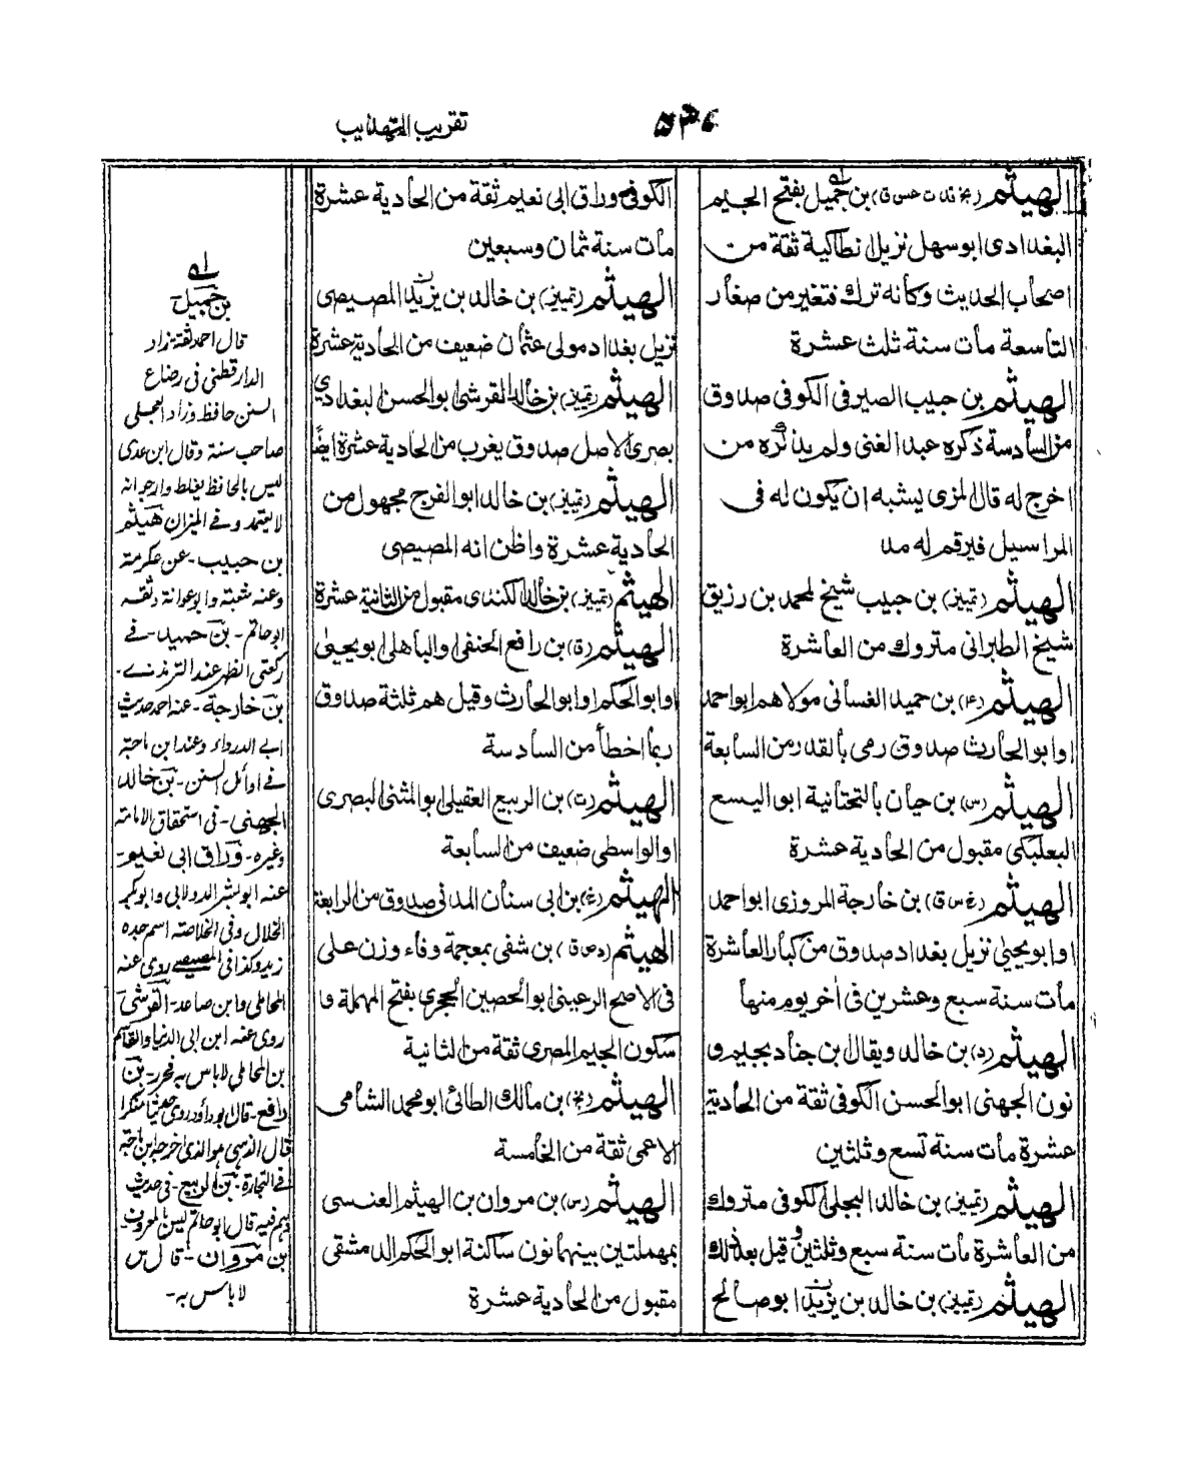 تقريب التهذيب
الهيثم بن جميل بفتح الجيم
البغدادى ابوسهل نزيل انطاكية ثقة من
اصحاب الحديث وكانه ترك فتغير من صغار
التاسعة مات سنة ثلث عشرة
الهيثم بن حبيب الصيرفى الكوفى صدوق
من السادسة ذكره عبد الغنى ولم يذكره من
اخرج له قال المزى يشبه ان يكون له فى
المراسيل فيرقم له مد
الهيثم (تمييز) بن حبيب شيخ لمحمد بن رزيق
شيخ الطبرانى متروك من العاشرة
الهيثم (ع) بن حميد الغسانى مولاهم ابو احمد
او ابو الحارث صدوق رمى بالقدر من السابعة
الهيثم (س) بن حيان بالتحتانية ابو اليسع
البعلبكى مقبول من الحادية عشرة
الهيثم (خ س ق) بن خارجة المروزى ابو احمد
او ابو يحيى نزيل بغداد صدوق من كبار العاشرة
مات سنة سبع وعشرين فى اخر يوم منها
الهيثم (د) بن خالد ويقال بن جناد بجيم و
نون الجهنى ابو الحسن الكوفى ثقة من الحادية
عشرة مات سنة تسع وثلثين
الهيثم (تمييز) بن خالد البجلى الكوفى متروك
من العاشرة مات سنة سبع وثلثين وقيل بعد ذلك
الهيثم (تمييز) بن خالد بن يزيد ابو صالح
الكوفى وراق ابى نعيم ثقة من الحادية عشرة
مات سنة ثمان وسبعين
الهيثم (تمييز) بن خالد بن يزيد المصيصى
نزيل بغداد مولى عثمان ضعيف من الحادية عشرة
الهيثم (تمييز) بن خالد القرشى ابو الحسن البغدادي
بصرى الاصل صدوق يغرب من الحادية عشرة ايضًا
الهيثم (تمييز) بن خالد ابو الفرج مجهول من
الحادية عشرة واظن انه المصيصى
الهيثم (تمييز) بن خالد الكندى مقبول من الثانية عشرة
الهيثم (ق) بن رافع الحنفى او الباهلى ابو يحيى
او ابو الحكم او ابو الحارث وقيل هم ثلثة صدوق
ربما اخطأ من السادسة
الهيثم (ت) بن الربيع العقيلى ابو المثنى البصرى
او الواسطى ضعيف من السابعة
الهيثم (خ) بن ابى سنان المدنى صدوق من الرابعة
الهيثم (د س ق) بن شفى بمعجمة وفاء وزن على
فى الاصح الرعينى ابو الحصين الحجرى بفتح المهملة و
سكون الجيم المصرى ثقة من الثانية
الهيثم بن مالك الطائى ابو محمد الشامى
الاعمى ثقة من الخامسة
الهيثم (س) بن مروان بن الهيثم العنسى
بمهملتين بينهما نون ساكنة ابو الحكم الدمشقى
مقبول من الحادية عشرة
بن جميل
قال احمد ثقة زاد
الدارقطنى فى رضاع
السنن حافظ وزاد العجلى
صاحب سنة وقال ابن عدى
ليس بالحافظ يغلط وارجو انه
لا يتعمد وفى الميزان هيثم
بن حبيب - عن عكرمة
وعنه شعبة وابو عوانة وثقه
ابو حاتم - بن حميد - فى
ركعتى الظهر عند الترمذى -
بن خارجة - عنه احمد حديث
ابى الدرداء وعند ابن ماجة
فى اوائل السنن - بن خالد
الجهنى - فى استحقاق الامامة
وغيره - وراق ابى نعيم -
عنه ابو بشر الدولابى وابو بكر
الخلال وفى الخلاصة اسم جده
زيد وكذا فى المصيصى روى عنه
المحاملى وابن صاعد - القرشى
روى عنه ابن ابى الدنيا والقاسم
بن المحاملى لاباس به - بن
رافع - قال ابو داؤد روى حديثا منكرا
قال الذهبى هو الذى اخرجه ابن ماجة
فى التجارة - بن الربيع - فى حديث
وهم فيه قال ابو حاتم ليس بالمعروف
بن مروان - قال س
لاباس به -